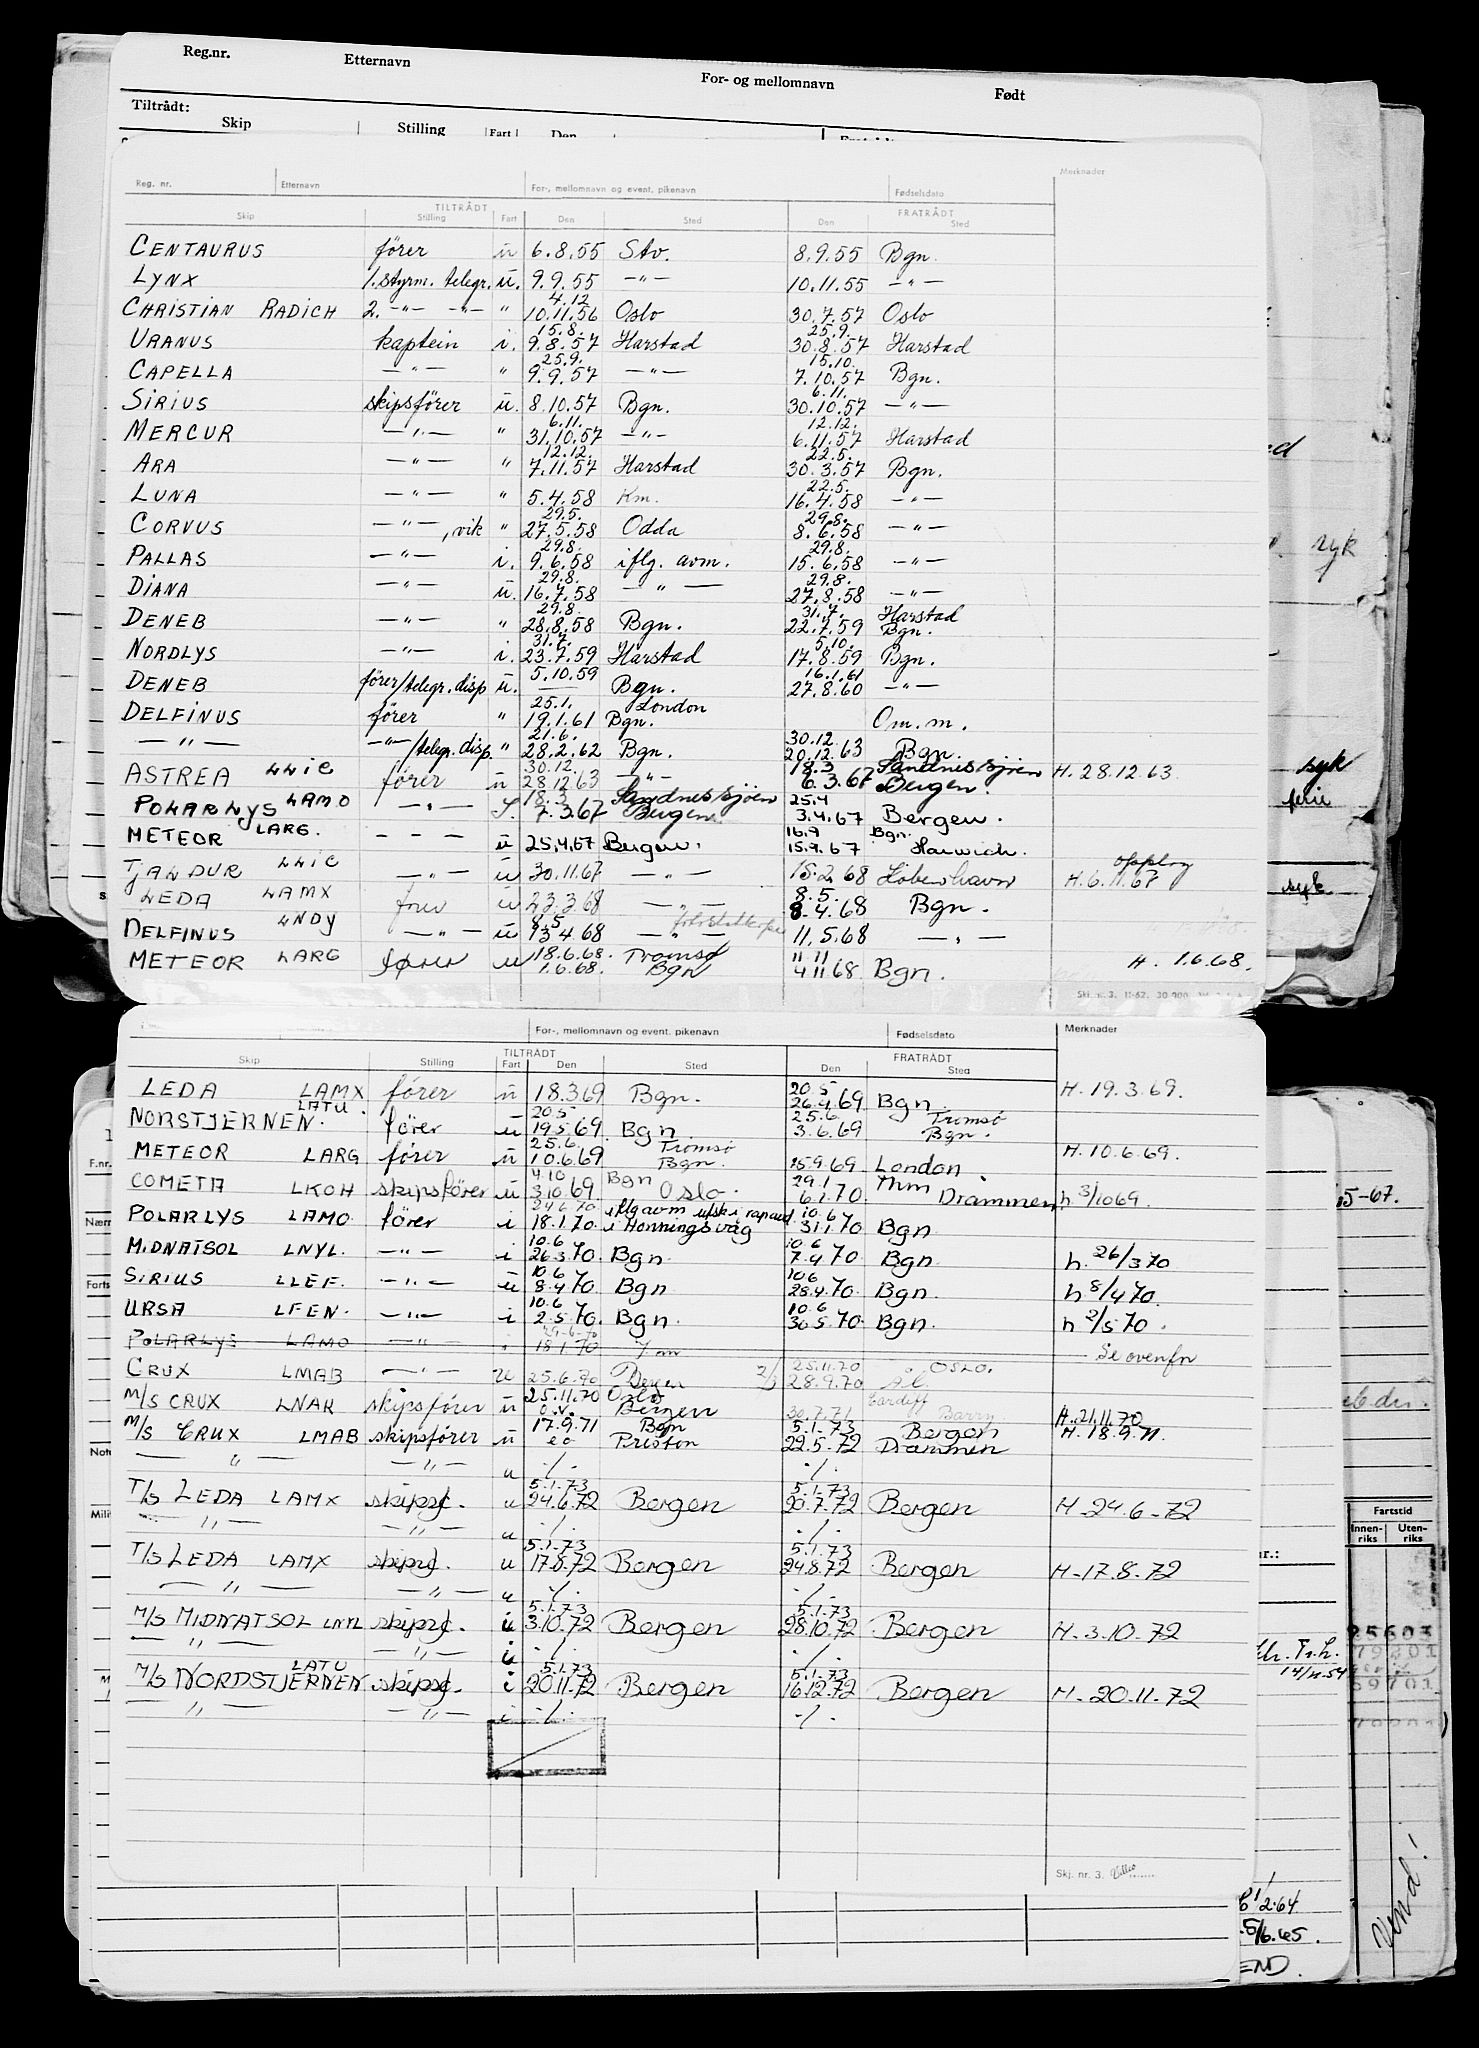 Reg.nr. Etternavn For- og mellomnavn Født
Tiltrådt:
Skip Stilling Fart Den
Reg. nr. Etternavn For-, mellomnavn og event. pikenavn Fødselsdato Merknader
TILTRÅDT FRATRÅDT
Skip Stilling Fart Den Sted Den Sted
CENTAURUS fører u 6.8.55 Stv. 8.9.55 Bgn.
LYNX 1. styrm. telegr. u. 9.9.55 —"— 10.11.55 —"—
4.12
CHRISTIAN RADICH 2. —"— —"— " 10.11.56 Oslo 30.7.57 Oslo
15.8. 25.9.
URANUS kaptein i. 9.8.57 Harstad 30.8.57 Harstad
25.9. 15.10.
CAPELLA —"— " 9.9.57 —"— 7.10.57 Bgn.
6.11.
SIRIUS skipsfører u. 8.10.57 Bgn. 30.10.57 —"—
6.11. 12.12.
MERCUR —"— " 31.10.57 —"— 6.11.57 Harstad
12.12. 22.5.
ARA —"— " 7.11.57 Harstad 30.3.57 Bgn.
22.5.
LUNA —"— " 5.4.58 Km. 16.4.58 —"—
29.5. 29.8.
CORVUS —"—, vik " 27.5.58 Odda 8.6.58 —"—
29.8. 29.8.
PALLAS —"— i. 9.6.58 iflg. avm. 15.6.58 —"—
29.8. 29.8.
DIANA —"— u. 16.7.58 —"— 27.8.58 —"—
29.8. 31.7. Harstad
DENEB —"— " 28.8.58 Bgn. 22.7.59 Bgn.
31.7. 5.10.
NORDLYS —"— i. 23.7.59 Harstad 17.8.59 Bgn.
5.10.59 16.1.61
DENEB fører/telegr. disp u. — Bgn. 27.8.60 —"—
25.1. London
DELFINUS fører " 19.1.61 Bgn. Om. m.
21.6. 30.12.
—"— —"—/telegr. disp. " 28.2.62 Bgn. 20.12.63 Bgn.
30.12. 18.3 Sandnessjøen
ASTREA LLIC fører u 28.12.63 —"— 6.3.67 Bergen. H. 28.12.63
18.3 Sandnessjøen 25.4
POLARLYS LAMO —"— 7.3.67 Bergen 3.4.67 Bergen.
16.9 Bgn.
METEOR LARG. — — — u 25.4.67 Bergen. 15.9.67 Harwich.
opplag
TJALDUR LLIC —"— u 30.11.67 —"— 15.2.68 København H. 6.11.67
8.5.
LEDA LAMX u 23.3.68 —"— 8.4.68 Bgn.
8.5
DELFINUS LNDY —"— u 13.4.68 —"— 11.5.68 —"—
18.6.68. Tromsø 11.11
METEOR LARG fører u 1.6.68. Bgn 4.11.68 Bgn. H. 1.6.68.
For-, mellomnavn og event. pikenavn Fødselsdato Merknader
TILTRÅDT FRATRÅDT
Skip Stilling Fart Den Sted Den Sted
20.5
LEDA LAMX fører u 18.3.69 Bgn. 26.4.69 Bgn H. 19.3.69.
LATU. 20.5 25.6. Tromsø
NORSTJERNEN. fører u 19.5.69 Bgn 3.6.69 Bgn.
25.6. Tromsø
METEOR LARG fører u 10.6.69 Bgn. 15.9.69 London H. 10.6.69.
4.10 Bgn 29.1 Thm
COMETA LKOH skipsfører u 3.10.69. Oslo. 6.1.70 Drammen h 3/10 69
24.6.70 iflg avm utsk i rap aud. 10.6
POLARLYS LAMO. fører i 18.1.70. i Honningsvåg 31.1.70 Bgn
10.6 10.6
MIDNATSOL LNYL. —"— i 26.3.70. Bgn 7.4.70 Bgn h. 26/3 70
10.6 10.6
SIRIUS LLEF. —"— u 8.4.70 Bgn 28.4.70 Bgn h 8/4 70.
10.6 10.6
URSA LFEN. —"— i 2.5.70. Bgn. 30.5.70 Bgn. h 2/5 70.
POLARLYS LAMO —"— 18.1.70 Se ovenfn
25.11.70 OSLO.
CRUX LMAB —"— u 25.6.70 Bergen 28.9.70
25.11.70 Oslo Cardiff
M/S CRUX LNAK skipsfører u o.v. Bergen 30.7.71 Barry H. 21.11.70
17.9.71 Bgn 5.1.73 Bergen
M/S CRUX LMAB skipsfører u Preston 22.5.72 Drammen H. 18.9.71.
—"— —"— u ./. ./.
5.1.73 5.1.73
T/S LEDA LAMX skipsf. u 24.6.72 Bergen 20.7.72 Bergen H-24.6-72
—"— —"— u ./. ./.
5.1.73 5.1.73
T/S LEDA LAMX skipsf. u 17.8.72 Bergen 24.8.72 Bergen H-17.8-72
—"— —"— u ./. ./.
5.1.73 5.1.73
M/S MIDNATSOL LNYL skipsf. i 3.10.72 Bergen 28.10.72 Bergen H-3-10-72
—"— —"— i ./. ./.
LATU 5.1.73 5.1.73
M/S NORDSTJERNEN skipsf. i 20.11.72 Bergen 16.12.72 Bergen H-20.11.72
" —"— i ./. ./.
Skj. nr. 3.
syk
syk
ferie
syk
5-67.
Fartstid
Innen-riks Uten-riks
14/11-54
1/2-64
5/6.45.
END.
Vend!